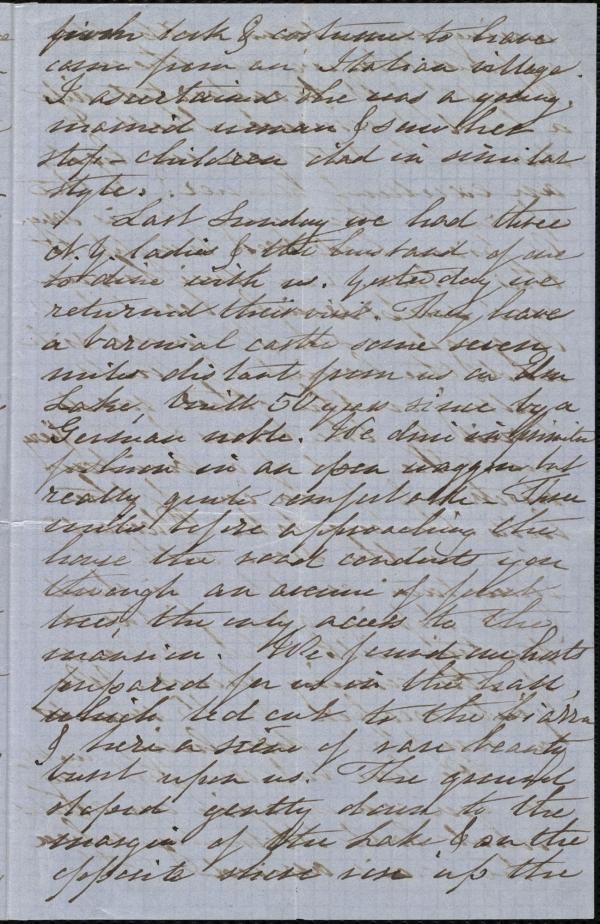 look & costume to have
come from an Italian village.
I ascertained she was a young
married woman & saw her
step-children clad in similar
style.
Last Sunday we had three
N.Y. ladies & the husband of one
to dine with us. Yesterday we
returned their visit. They have
a baronial castle some seven
miles distant from us on
Lake, built 50 years since by a
German noble. We drive in primitive
fashion in an open waggon but
really quite comfortable. Three
miles before approaching the
house the road conducts you
through an avenue of forest
trees, the only access to the
mansion. We found our hosts
prepared for us in the hall,
which led out to the piazza
& here a scene of rare beauty
burst upon us. The ground
sloped gently down to the
margin of the Lake & on the
opposite shore rise up the